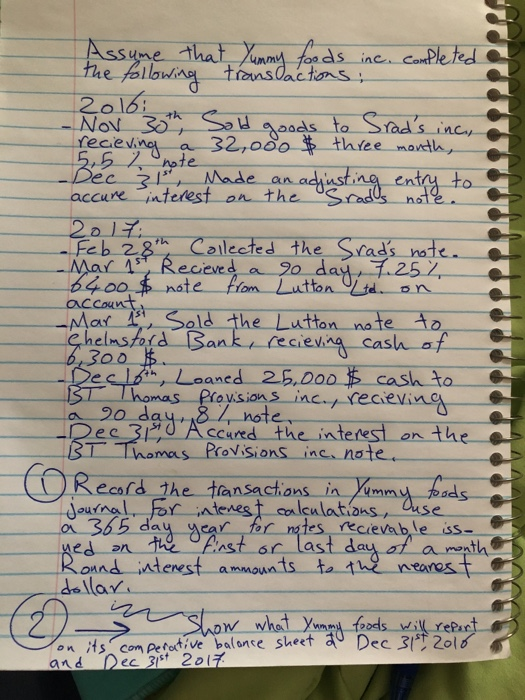 Assume that Yummy foods inc. completed
the following transactions:
2016:
- Nov 30th, Sold goods to Srad's inc,
recieving a 32,000 $ three month,
5,5 % note
- Dec 31st, Made an adjusting entry to
accure interest on the Srad's note.
2017:
- Feb 28th Collected the Srad's note.
- Mar 1st, Recieved a 90 day, 7.25%,
6400 $ note from Lutton Ltd. on
account.
- Mar 1st, Sold the Lutton note to
Chelmsford Bank, recieving cash of
6,300 $.
- Dec 16th, Loaned 25,000 $ cash to
BT Thomas Provisions inc., recieving
a 90 day, 8 % note.
- Dec 31st, Accured the interest on the
BT Thomas Provisions inc. note.
① Record the transactions in Yummy foods
journal. For interest calculations, use
a 365 day year for notes recievable iss-
ued on the first or last day of a month
Round interest ammounts to the nearest
dollar.
② → Show what Yummy foods will report
on its comperative balance sheet at Dec 31st, 2016
and Dec 31st 2017.